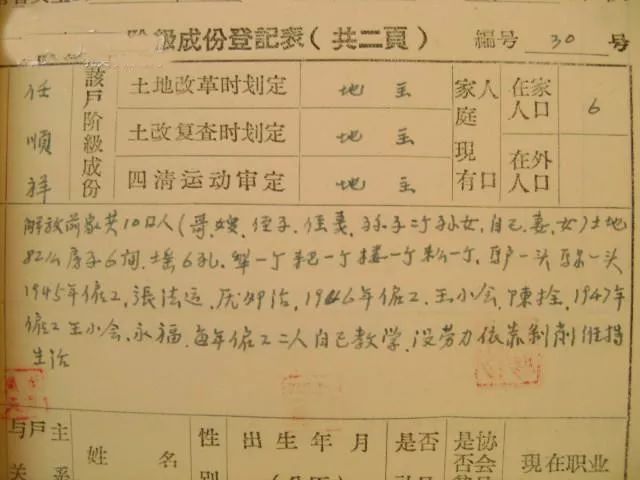 阶級成份登記表（共二頁） 編号 30 号
任順祥 該戶阶級成份 土地改革时划定 地主 家庭現有人口 在家人口 6
土改复查时划定 地主
四清运动审定 地主 在外人口
解放前家共10口人(哥、嫂、侄子、侄义、孙子二个孙女、自己、妻、女)土地
82亩房子6间、窑6孔、犂一个耙一个搂一个 一个、驴一头 一头
1945年僱工、張法运、 1946年僱工、王小会、陳拴、1947年
僱工王小会、永福、每年僱工二人自己教学、没劳力依靠剝削維持
生活
与戶主关系 姓名 性別 出生年月 是否 是否 協会 現在职业